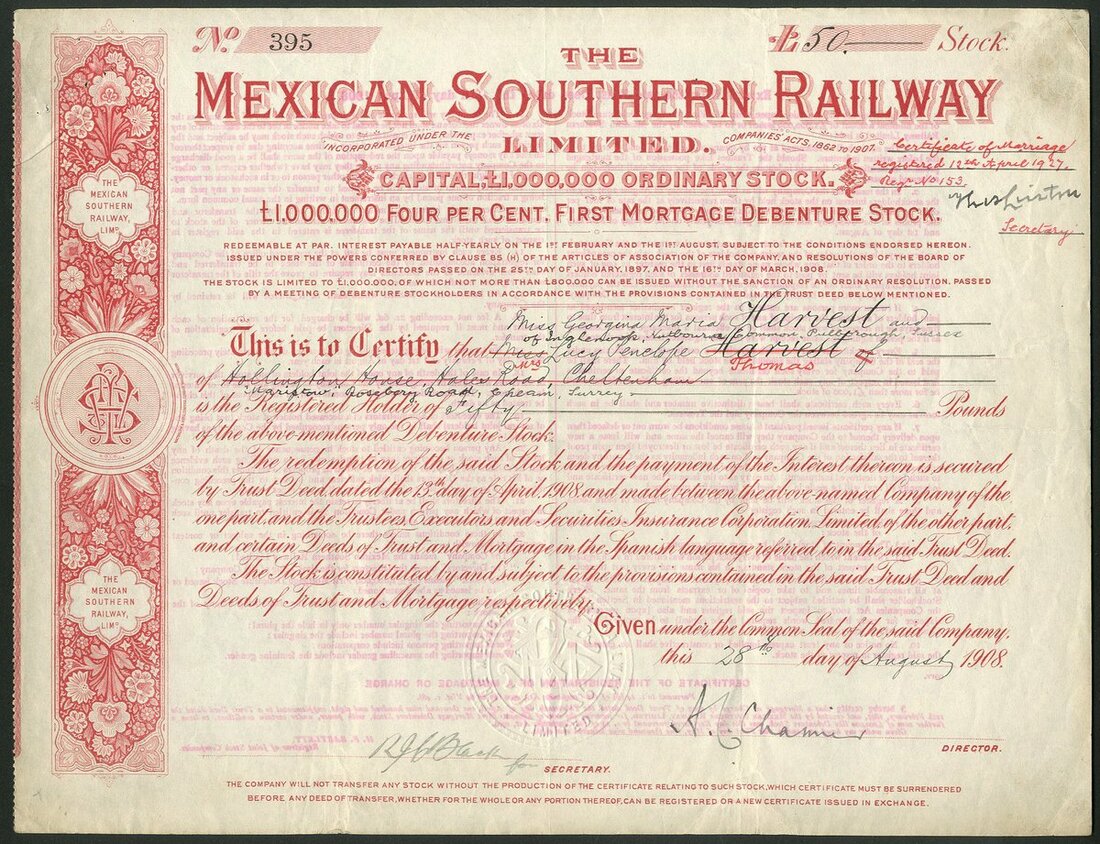 No. 395
£50.
Stock.
THE
MEXICAN SOUTHERN RAILWAY
LIMITED.
INCORPORATED UNDER THE
COMPANIES' ACTS, 1862 TO 1907.
Certificate of Marriage
registered 12th April 1927.
Regr. No 153.
Secretary
CAPITAL, £1,000,000 ORDINARY STOCK.
£1,000,000 FOUR PER CENT. FIRST MORTGAGE DEBENTURE STOCK.
REDEEMABLE AT PAR. INTEREST PAYABLE HALF-YEARLY ON THE 1ST FEBRUARY AND THE 1ST AUGUST, SUBJECT TO THE CONDITIONS ENDORSED HEREON.
ISSUED UNDER THE POWERS CONFERRED BY CLAUSE 85 (H) OF THE ARTICLES OF ASSOCIATION OF THE COMPANY, AND RESOLUTIONS OF THE BOARD OF
DIRECTORS PASSED ON THE 25TH DAY OF JANUARY, 1897, AND THE 16TH DAY OF MARCH, 1908.
THE STOCK IS LIMITED TO £1,000,000, OF WHICH NOT MORE THAN £800,000 CAN BE ISSUED WITHOUT THE SANCTION OF AN ORDINARY RESOLUTION, PASSED
BY A MEETING OF DEBENTURE STOCKHOLDERS IN ACCORDANCE WITH THE PROVISIONS CONTAINED IN THE TRUST DEED BELOW MENTIONED.
Miss Georgina Maria Harvest and
of Inglenook, Common, Pulborough, Sussex
This is to Certify that Miss Lucy Penelope Harvest
Mrs Thomas
of Hollington House, Hales Road, Cheltenham
Roseberry Road, Cheam, Surrey
is the Registered Holder of Fifty Pounds
of the above-mentioned Debenture Stock.
The redemption of the said Stock and the payment of the Interest thereon is secured
by Trust Deed, dated the 13th day of April, 1908, and made between the above-named Company of the
one part, and the Trustees, Executors and Securities Insurance Corporation, Limited, of the other part,
and certain Deeds of Trust and Mortgage in the Spanish language referred to in the said Trust Deed.
The Stock is constituted by and subject to the provisions contained in the said Trust Deed and
Deeds of Trust and Mortgage respectively.
Given under the Common Seal of the said Company,
this 28th day of August 1908.
A. C. Chamier
DIRECTOR.
for SECRETARY.
THE COMPANY WILL NOT TRANSFER ANY STOCK WITHOUT THE PRODUCTION OF THE CERTIFICATE RELATING TO SUCH STOCK, WHICH CERTIFICATE MUST BE SURRENDERED
BEFORE ANY DEED OF TRANSFER, WHETHER FOR THE WHOLE OR ANY PORTION THEREOF, CAN BE REGISTERED OR A NEW CERTIFICATE ISSUED IN EXCHANGE.
THE
MEXICAN
SOUTHERN
RAILWAY,
LIMD.
THE
MEXICAN
SOUTHERN
RAILWAY,
LIMD.
LIMITED